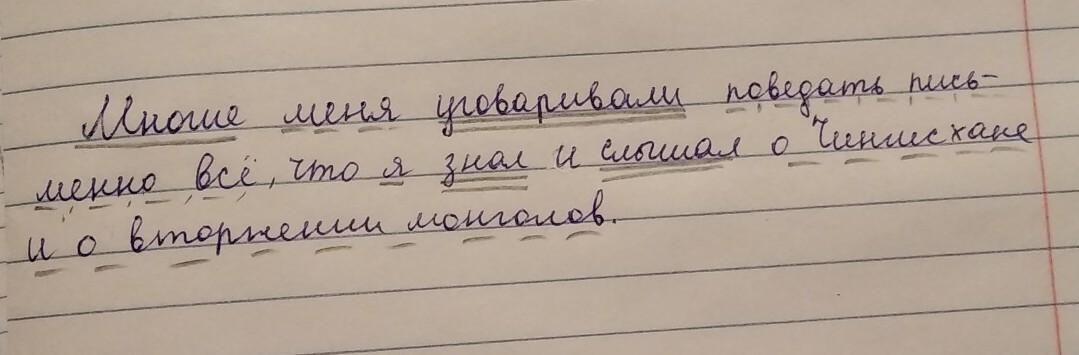 Многие меня уговаривали поведать пись-
менно всё, что я знал и слышал о Чингисхане
и о вторжении монголов.